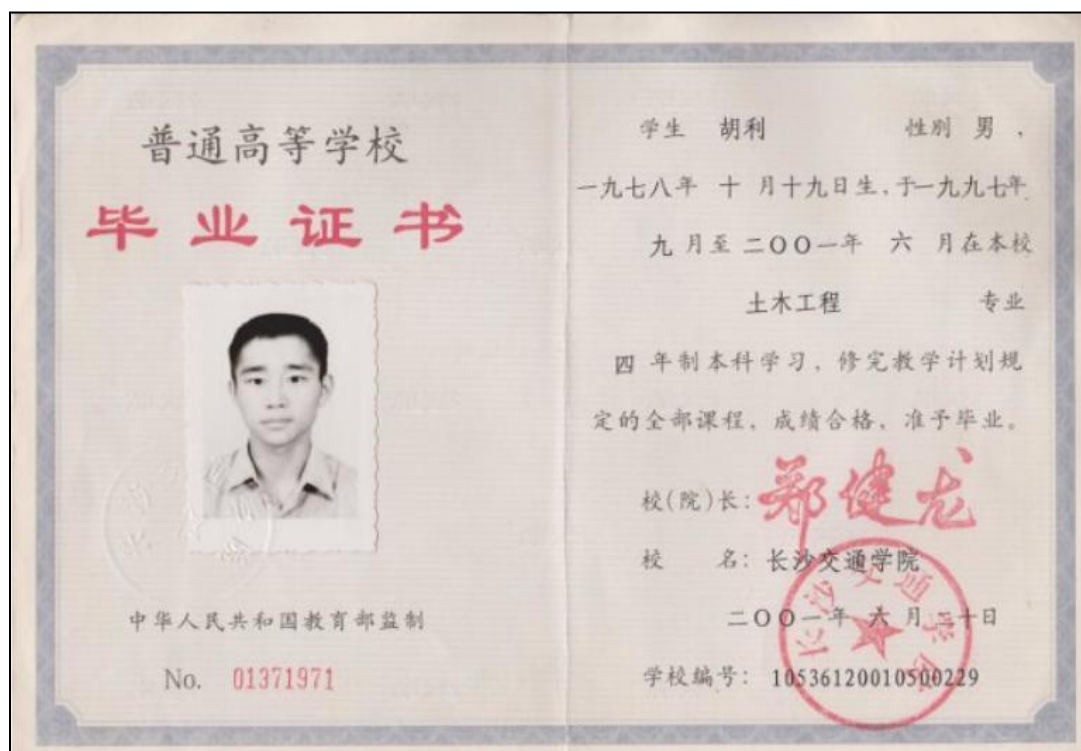 普通高等学校
毕业证书
中华人民共和国教育部监制
No. 01371971
学生 胡利 性别 男 ,
一九七八年 十 月十九日生,于一九九七年
九 月至 二〇〇一年 六 月在本校
土木工程 专业
四 年制本科学习,修完教学计划规
定的全部课程,成绩合格,准予毕业。
校(院)长: 郑健龙
校 名: 长沙交通学院
二〇〇一年 六 月 二十日
学校编号: 10536120010500229
长沙交通学院